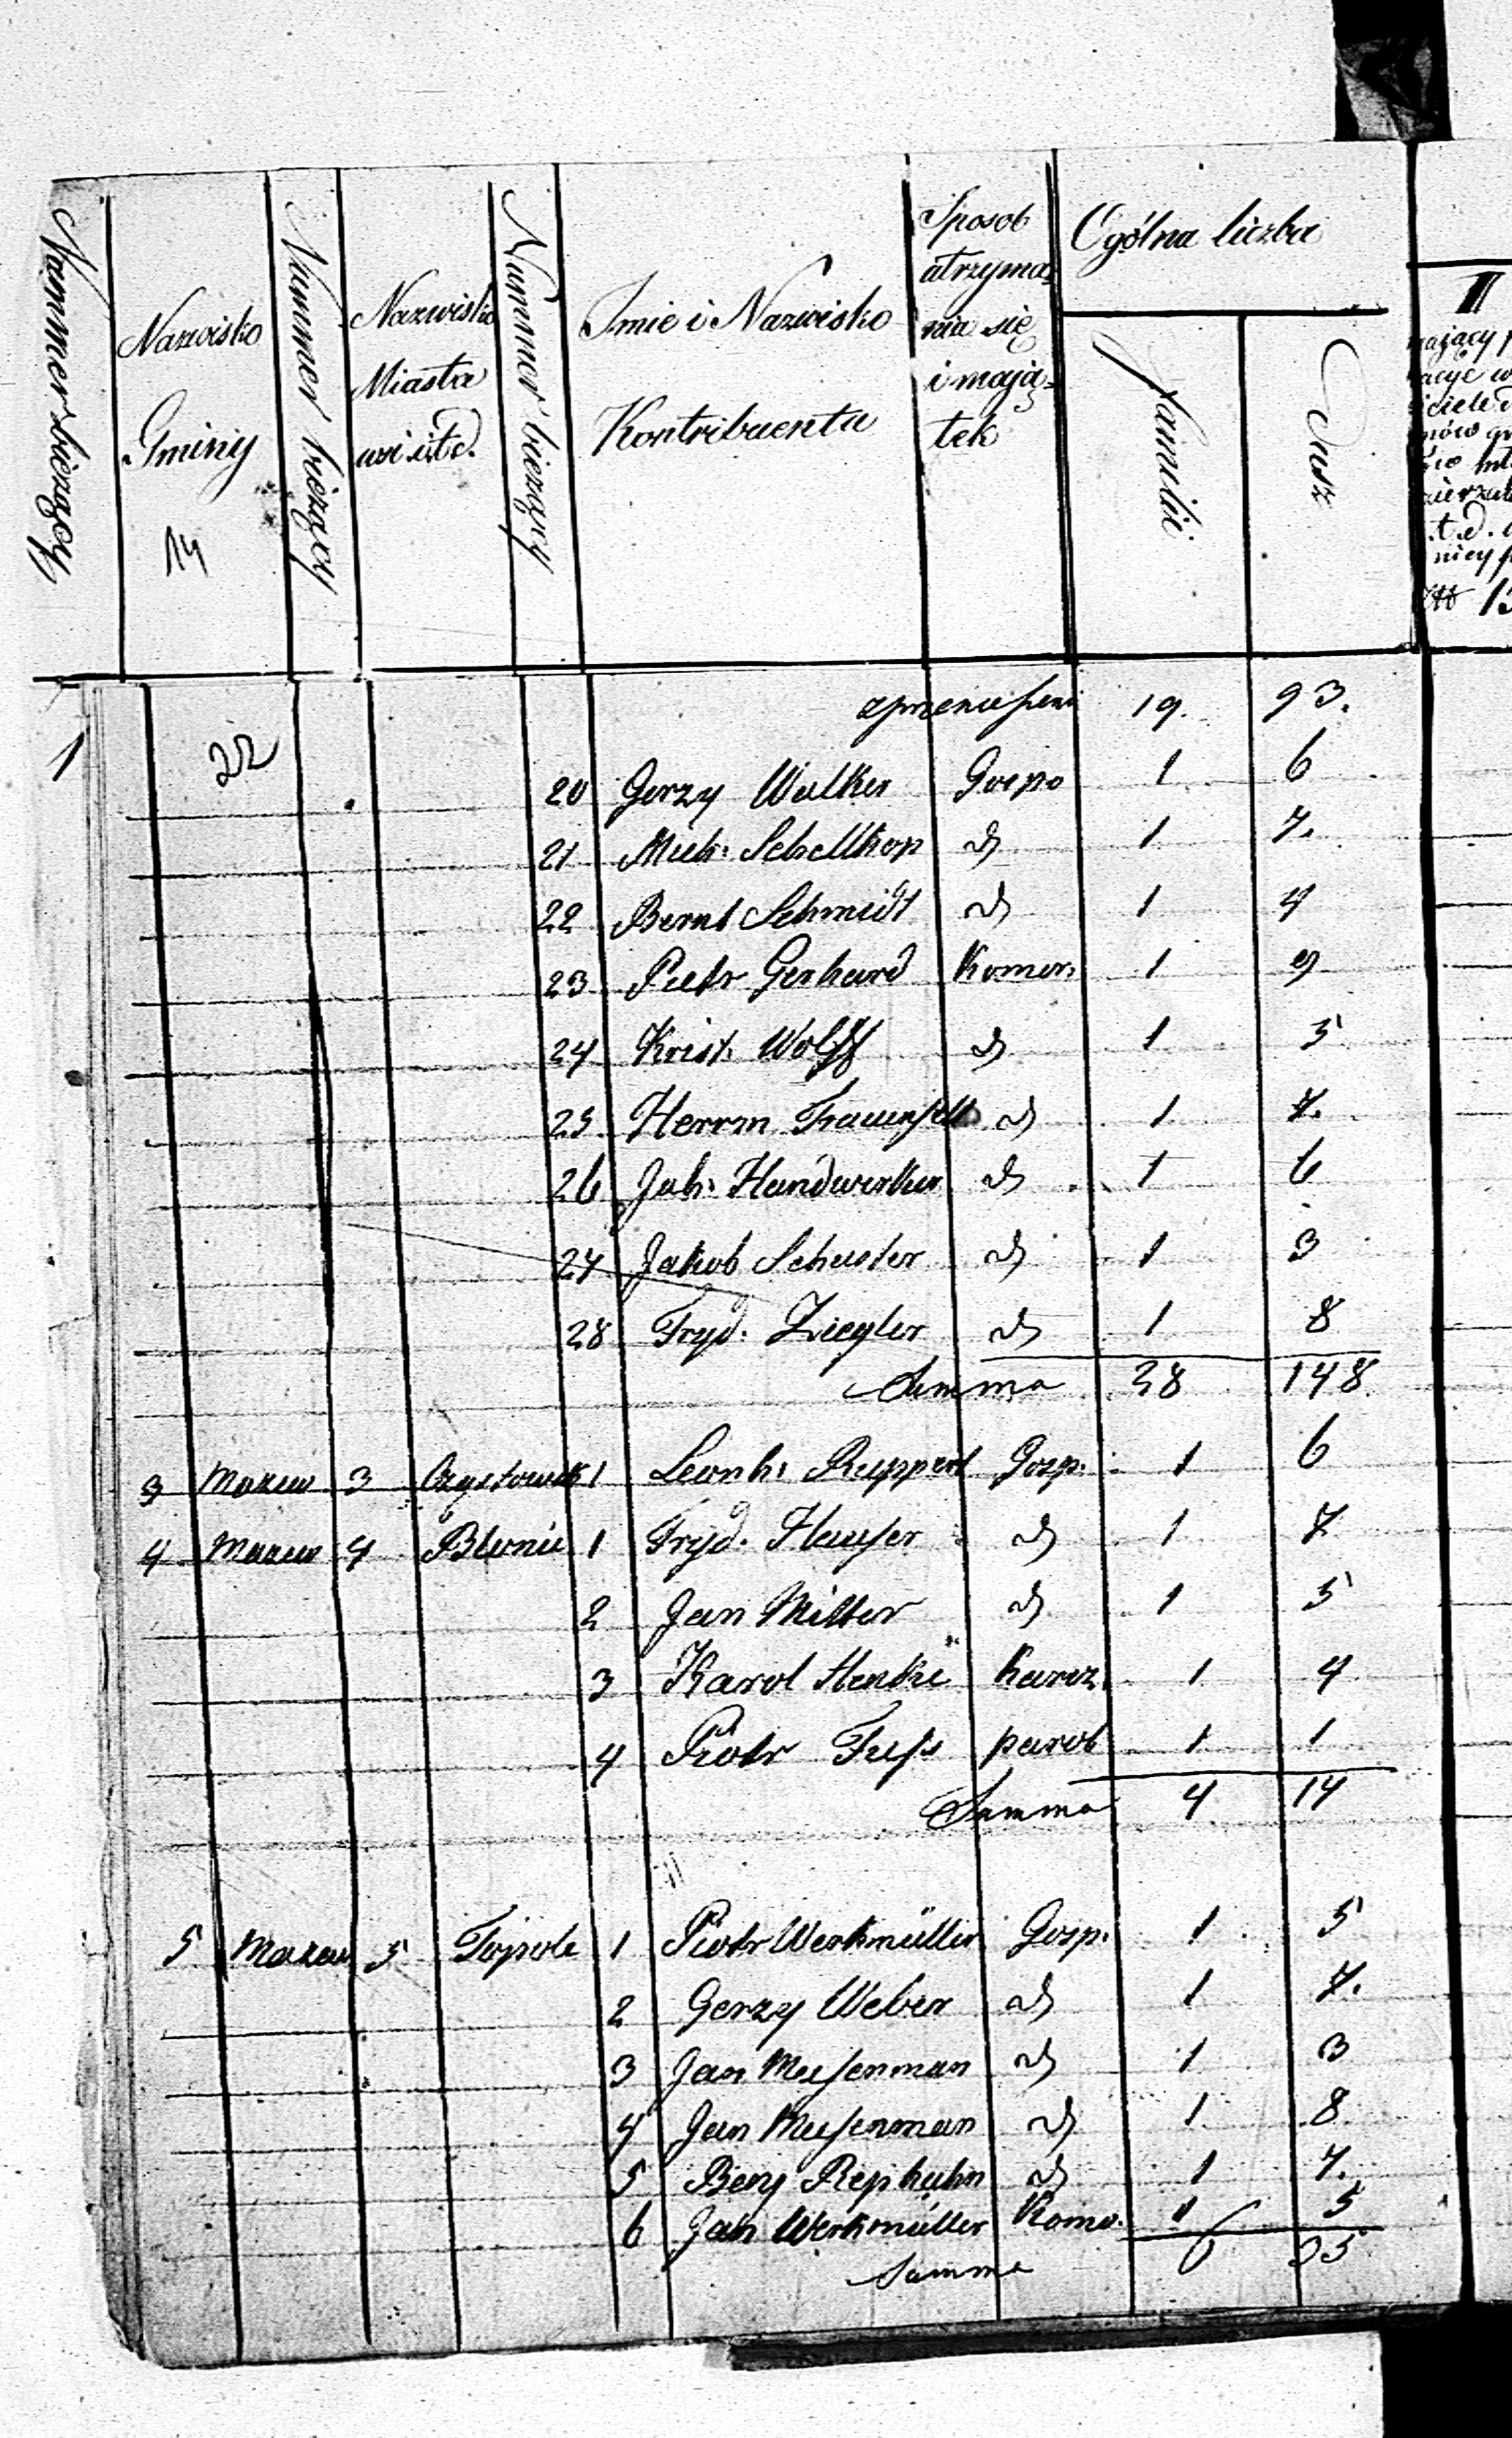 Nummer bieżący
Nazwisko Gminy
14
Nummer bieżący
Nazwisko Miasta wsi itd.
Nummer bieżący
Imie i Nazwisko Kontribuenta
Sposob utrzyma= nia się i mają= tek
Ogólna liczba
Familii
Dusz
II
zprzeniesieni 19. 93.
1 22
20 Gerzy Walker Gospo 1 6
21 Mich: Schellkop d 1 7.
22 Bernt Schmidt d 1 4
23 Pietr Gerhard Komor: 1 9
24 Krist: Wolff d 1 5
25. Herrm Frauenfeld d 1 7.
26 Joh: Handwerker d 1 6
27 Jakob Schuster d 1 3
28 Fryd. Ziegler d 1 8
Summa 28 148
3 Mazew 3 1 Leonh: Ruppert Gosp: 1 6
4 Mazew 4 Blonie 1 Fryd. Hauser d 1 7
2 Jan Miller d 1 5
3 Karol Henke Karcz. 1 4
4 Piotr Fuss parob 1 1
Summa 4 17
5 Mazew 5 Topole 1 Piotr Werkmüller Gosp. 1 5
2 Gerzy Weber d 1 7.
3 Jan Musenman d 1 3
4 Jan Musenman d 1 8
5 Benj Rephuhn d 1 7.
6 Jan Werkmüller Komo. 1 5
Summa 6 35